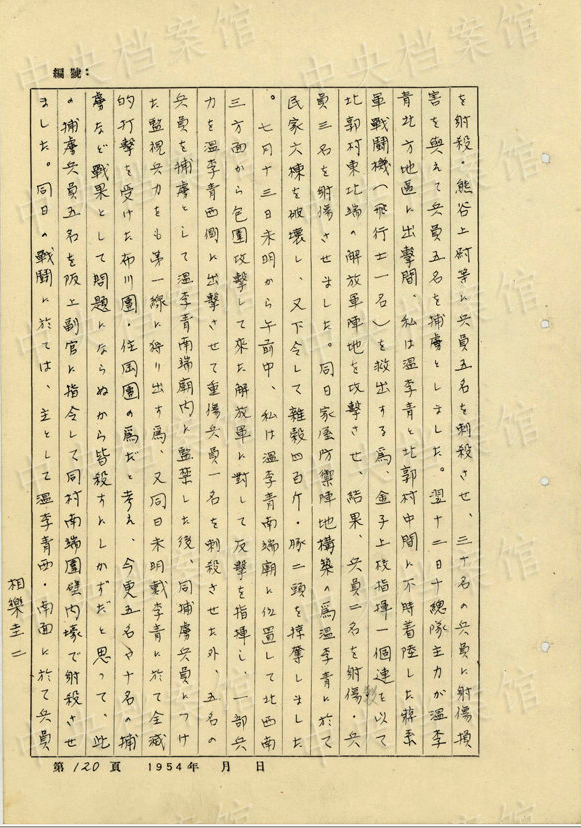 編號:
を射殺・熊谷上尉等に兵員五名を刺殺させ、三十名の兵員に射傷損
害を與えて兵員五名を捕虜としました。翌十二日十總隊主力が溫李
青北方地區に出擊間、私は溫李青と北郭村中間に不時着陸した蔣系
軍戰鬪機(飛行士一名)を救出する爲、金子上校指揮一個連を以て
北郭村東北端の解放軍陣地を攻擊させ、結果、兵員二名を射傷・兵
員三名を射傷させました。同日家屋防禦陣地構築の爲溫李青に於て
民家六棟を破壞し、又下令して雜穀四百斤・豚二頭を掠奪しました
。七月十三日未明から午前中、私は溫李青南端廟に位置して北西南
三方面から包圍攻擊して來た解放軍に對して反擊を指揮し、一部兵
力を溫李青西側に出擊させて重傷兵員一名を刺殺させた外、五名の
兵員を捕虜として溫李青南端廟內に監禁した後、同捕虜兵員につけ
た監視兵力をも第一線に狩り出す爲、又同日未明戴李青に於て全滅
的打擊を受けた布川團・住岡團の爲だと考え、今更五名や十名の捕
虜など戰果として問題にならぬから皆殺すにしかずだと思って、此
の捕虜兵員五名を阪上副官に指令して同村南端圍壁內壕で射殺させ
ました。同日の戰鬪に於ては、主として溫李青西・南面に於て兵員
相樂圭二
第120頁 1954年 月 日
中央档案馆